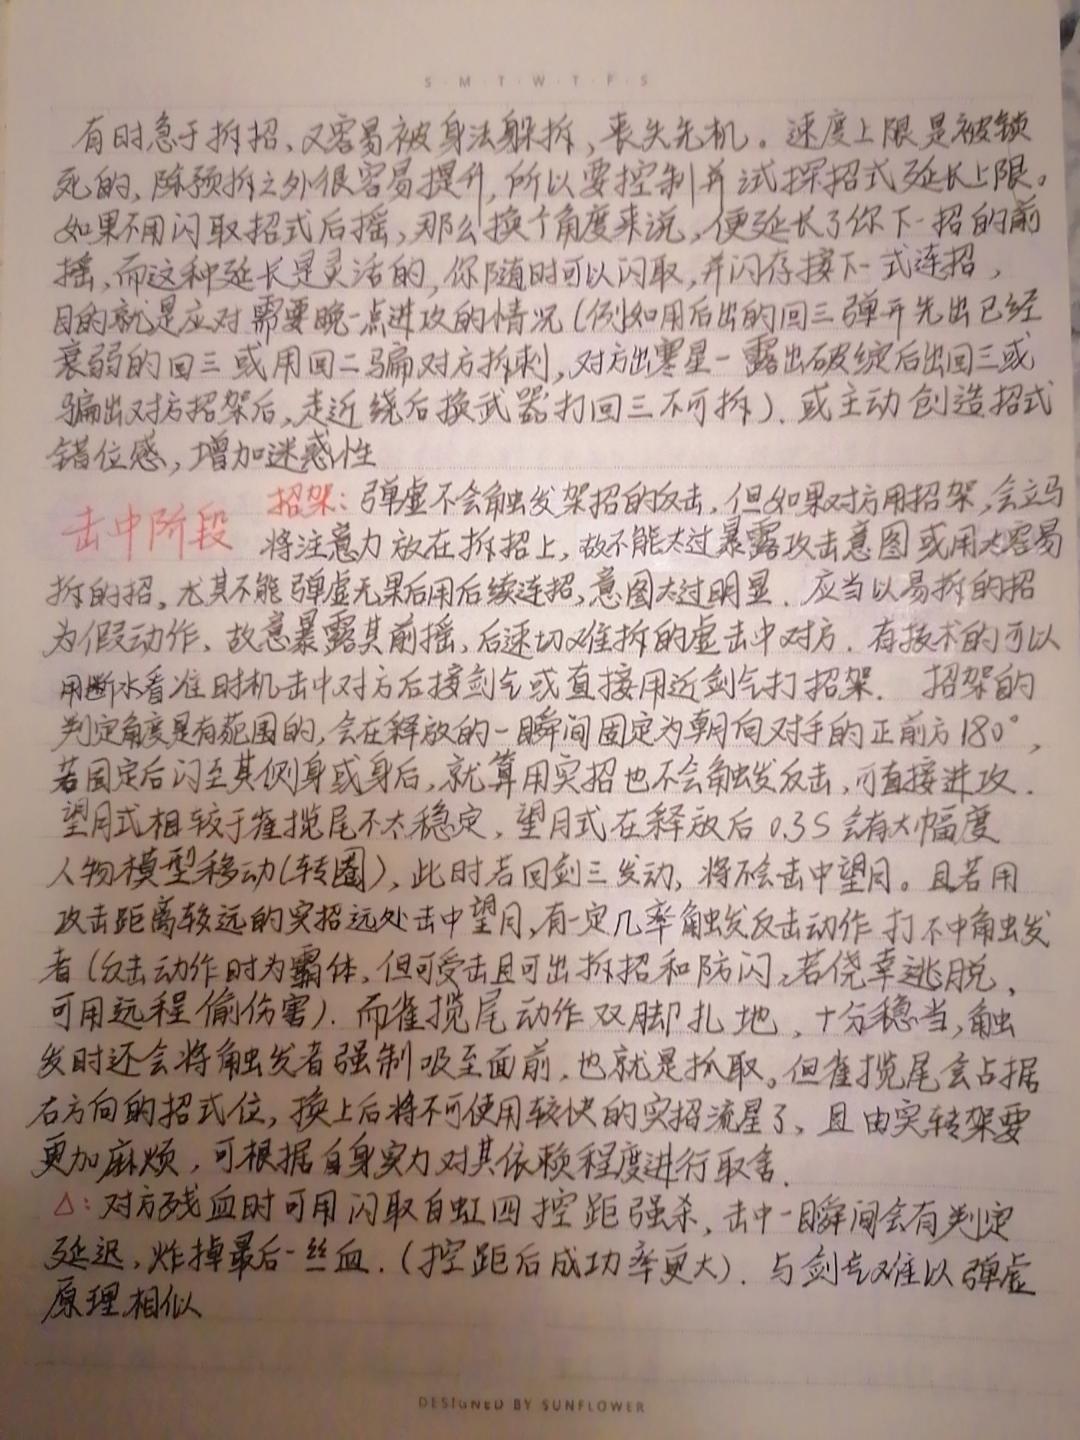 S · M · T · W · T · F · S
有时急于拆招,又容易被身法躲拆,丧失先机。速度上限是被锁
死的,除预拆之外很容易提升,所以要控制并试探招式延长上限。
如果不用闪取招式后摇,那么换个角度来说,便延长了你下一招的前
摇,而这种延长是灵活的,你随时可以闪取,并闪存接下一式连招,
目的就是应对需要晚一点进攻的情况(例如用后出的回三弹开先出已经
衰弱的回三或用回二骗对方拆刺,对方出寒星一露出破绽后出回三或
骗出对方招架后,走近绕后换武器打回三不可拆).或主动创造招式
错位感,增加迷惑性
击中阶段 招架:弹虚不会触发架招的反击,但如果对方用招架,会立马
将注意力放在拆招上,故不能太过暴露攻击意图或用太容易
拆的招。尤其不能弹虚无果后用后续连招,意图太过明显.应当以易拆的招
为假动作,故意暴露其前摇,后速切难拆的虚击中对方.有技术的可以
用断水看准时机击中对方后接剑气或直接用近剑气打招架. 招架的
判定角度是有范围的,会在释放的一瞬间固定为朝向对手的正前方180°,
若固定后闪至其侧身或身后,就算用实招也不会触发反击,可直接进攻.
望月式相较于雀揽尾不太稳定,望月式在释放后0.3S会有大幅度
人物模型移动(转圈),此时若回剑三发动,将不会击中望月。且若用
攻击距离较远的实招远处击中望月,有一定几率触发反击动作打不中触发
者(反击动作时为霸体,但可受击且可出拆招和防闪,若侥幸逃脱,
可用远程偷伤害).而雀揽尾动作双脚扎地,十分稳当,触
发时还会将触发者强制吸至面前,也就是抓取。但雀揽尾会占据
右方向的招式位,换上后将不可使用较快的实招流星了,且由实转架要
更加麻烦,可根据自身实力对其依赖程度进行取舍.
△:对方残血时可用闪取白虹四控距强杀,击中一瞬间会有判定
延迟,炸掉最后一丝血.(控距后成功率更大).与剑气难以弹虚
原理相似
DESIGNED BY SUNFLOWER